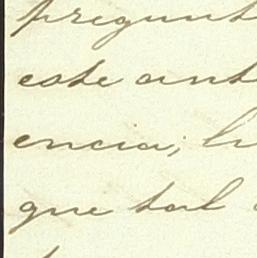 pregunt
este ant
encia; h
que tal